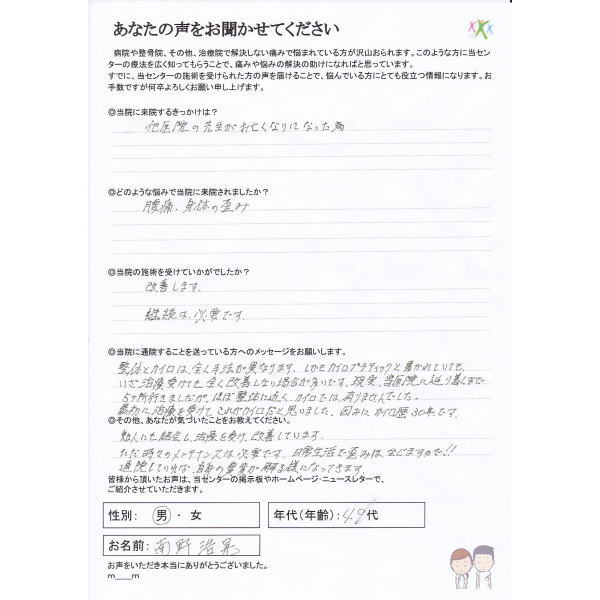 あなたの声をお聞かせてください
病院や整骨院、その他、治療院で解決しない痛みで悩まれている方が沢山おられます。このような方に当セン
ターの療法を広く知ってもらうことで、痛みや悩みの解決の助けになればと思っています。
すでに、当センターの施術を受けられた方の声を届けることで、悩んでいる方にとても役立つ情報になります。お
手数ですが何卒よろしくお願い申し上げます。
◎当院に来院するきっかけは?
他医院の先生がお亡くなりになった為
◎どのような悩みで当院に来院されましたか?
腰痛、身体の歪み
◎当院の施術を受けていかがでしたか?
改善します。
継続は、必要です。
◎当院に通院することを迷っている方へのメッセージをお願いします。
整体とカイロは、全く手法が異なります。しかもカイロプラティックと書かれていても、
いざ治療受けても全く改善しない場合が多いです。現実、当医院に辿り着くまで
5ヶ所行きましたが、ほぼ整体に近く、カイロでは、有りませんでした。
最初に治療を受けて、これがカイロだと思いました。因みにカイロ歴30年です。
◎その他、あなたが気づいたことをお教えください。
知人にも紹介し、治療を受け、改善しています。
ただ時々のメンテナンスは必要です。日常生活で歪みは、生じますので!!
通院していれば、自身の異常が解る様になってきます。
皆様から頂いたお声は、当センターの掲示板やホームページ・ニュースレターで、
ご紹介させていただきます。
性別: 男 ・ 女 年代(年齢): 49代
お名前: 南野 浩
お声をいただき本当にありがとうございました。
m___m